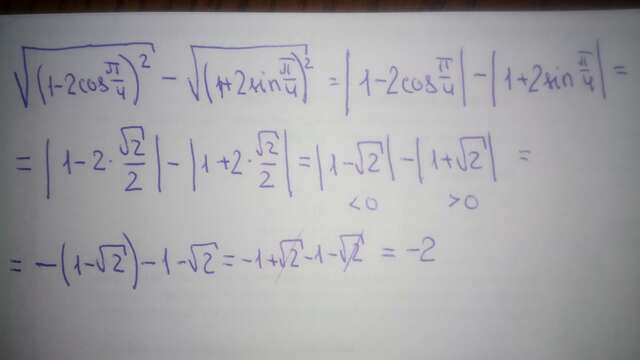 √(1-2cos π/4)² - √(1+2sin π/4)² = |1-2cos π/4| - |1+2sin π/4| =
= |1-2·√2/2| - |1+2·√2/2| = |1-√2| - |1+√2| =
<0 >0
= -(1-√2)-1-√2 = -1+√2-1-√2 = -2